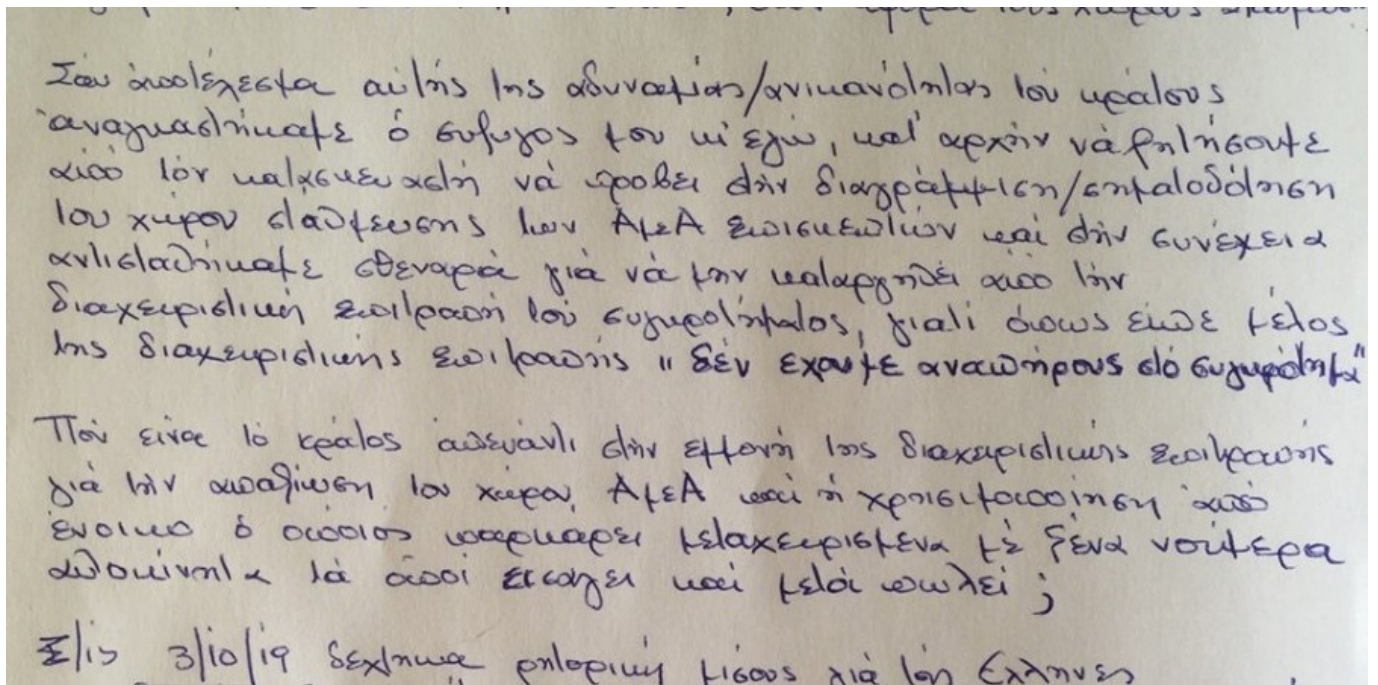 τους χώρους
Σάν αποτέλεσμα αυτής της αδυναμίας/ανικανότητας τού κράτους
αναγκαστήκαμε ό συζυγος μου κι' εγώ, κατ' αρχήν νά ζητήσουμε
από τόν κατασκευαστή νά προβεί στήν διαγράμμιση/σηματοδότηση
του χώρου στάθμευσης των ΑμεΑ επισκεπτών καί στήν συνέχεια
αντισταθήκαμε σθεναρά γιά νά μην καταργηθεί από τήν
διαχειριστική επιτροπή τού συγκροτήματος, γιατί όπως είπε μέλος
της διαχειριστικής επιτροπής " δέν έχουμε αναπήρους στό συγκρότημα"
Πού είναι τό κράτος απέναντι στήν εμμονή της διαχειριστικής επιτροπής
γιά τήν απαξίωση του χώρου ΑμεΑ καί ή χρησιμοποίηση από
ένοικο ό οποίος παρκάρει μεταχειρισμένα μέ ξένα νούμερα
αυτοκίνητα τά οποί εισαγει καί μετά πωλεί ;
Στις 3/10/19 δέχτηκα ρητορική μίσους γιά τούς Έλληνες